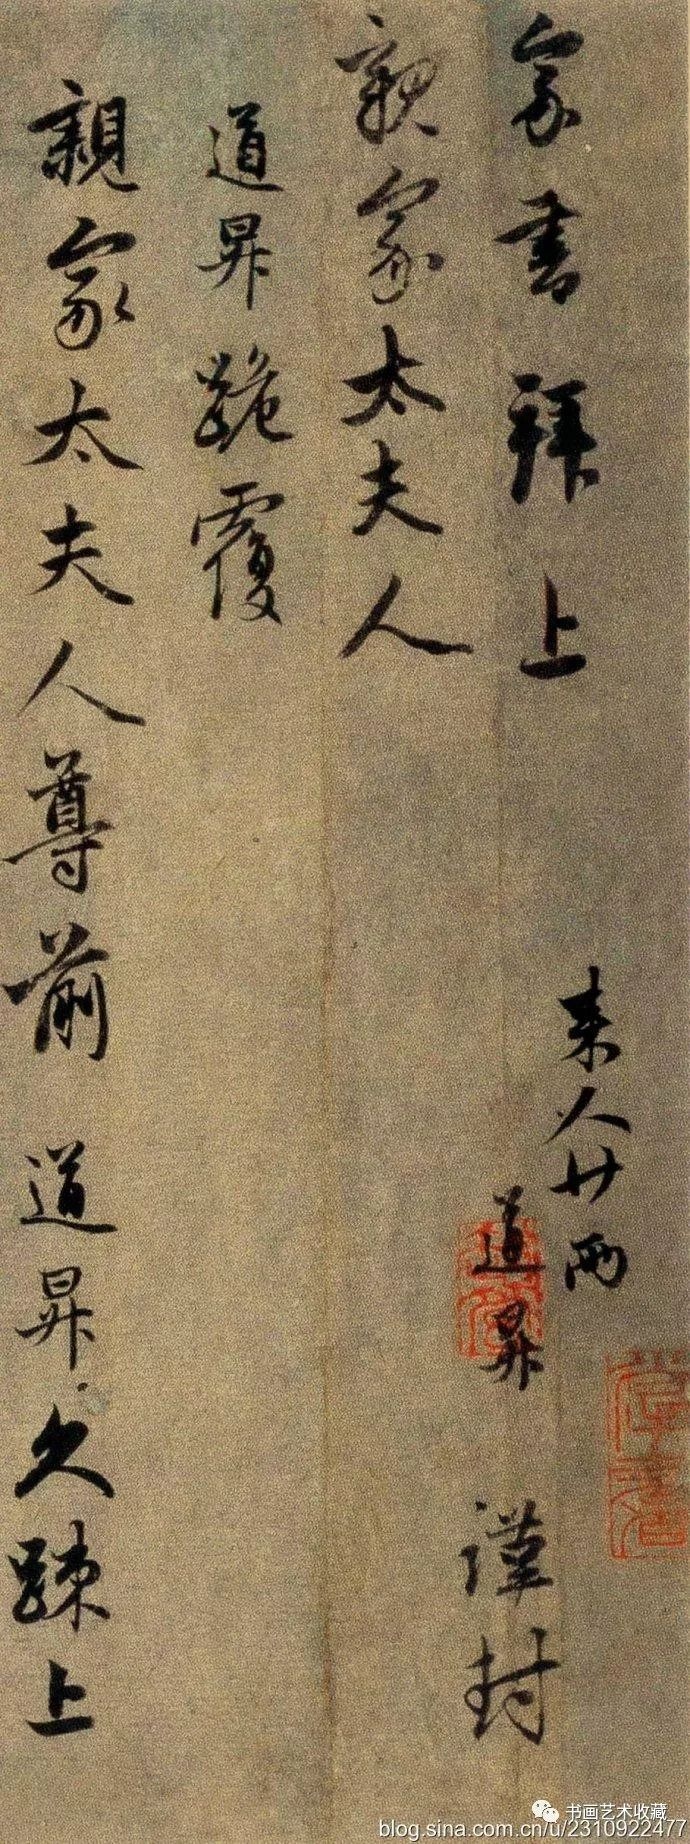 家書拜上
来人廿兩
親家太夫人
道昇謹封
道昇跪覆
親家太夫人尊前 道昇久疎上
书画艺术收藏
blog.sina.com.cn/u/2310922477